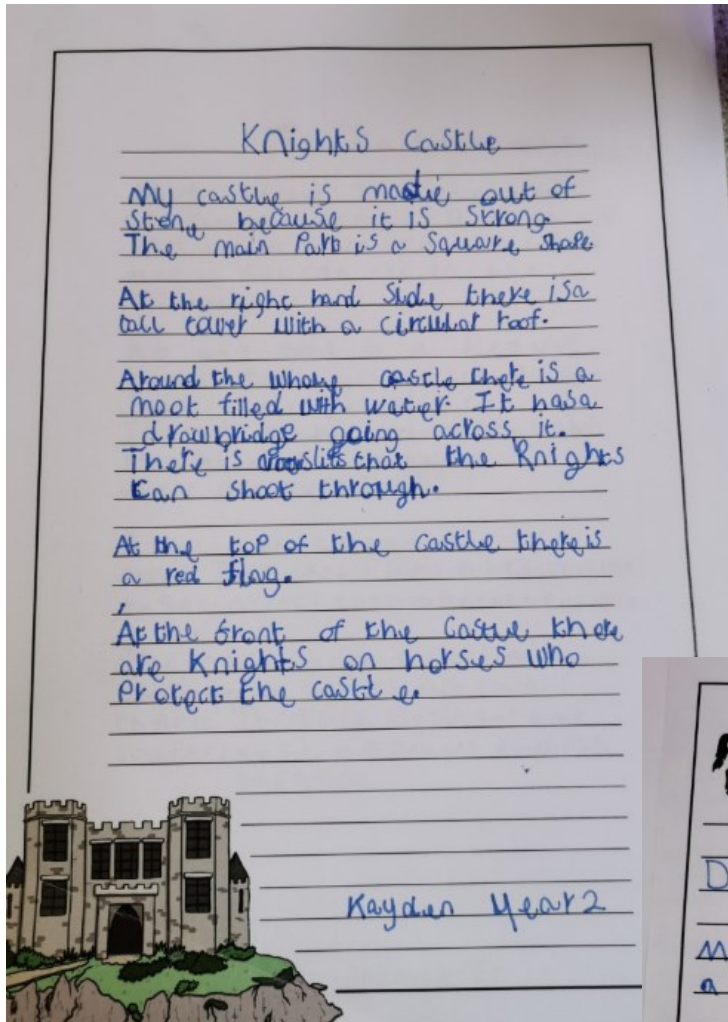 Knights Castle
My castle is made out of
stone because it is strong.
The main part is a square shape
At the right hand side there is a
tall tower with a circular roof.
Around the whole castle there is a
moat filled with water. It has a
drawbridge going across it.
There is slits that the knights
can shoot through.
At the top of the castle there is
a red flag.
At the front of the castle there
are knights on horses who
protect the castle.
Kayden Year 2
D
M
a